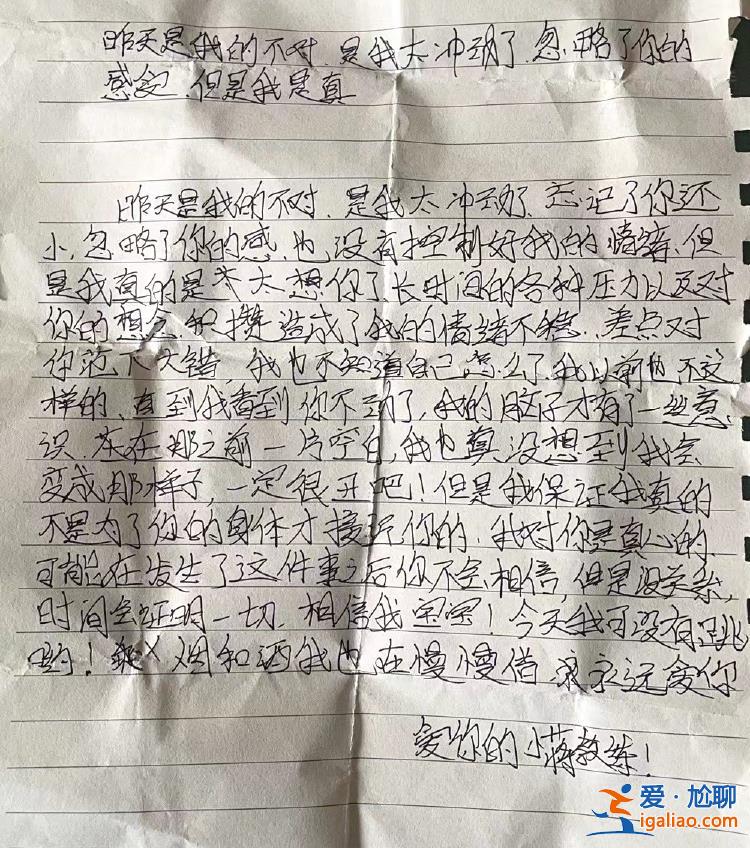 昨天是我的不对，是我太冲动了，忽略了你的
感受 但是我是真
昨天是我的不对，是我太冲动了，忘记了你还
小，忽略了你的感，也没有控制好我的情绪，但
是我真的是太想你了，长时间的各种压力以及对
你的想念积攒造成了我的情绪不稳，差点对
你犯下大错，我也不知道自己怎么了，我以前也不这
样的，直到我看到你不动了，我的脑子才有了一丝意
识，在那之前一片空白，我也真没想到我会
变成那样子，一定很丑吧！但是我保证我真的
不是为了你的身体才接近你的，我对你是真心的，
可能在发生了这件事之后你不会相信，但是没关系，
时间会证明一切，相信我宝宝！今天我可没有
哟！烟和酒我也在慢慢借 永远爱你
爱你的小蒋教练！
爱·尬聊
igaliao.com